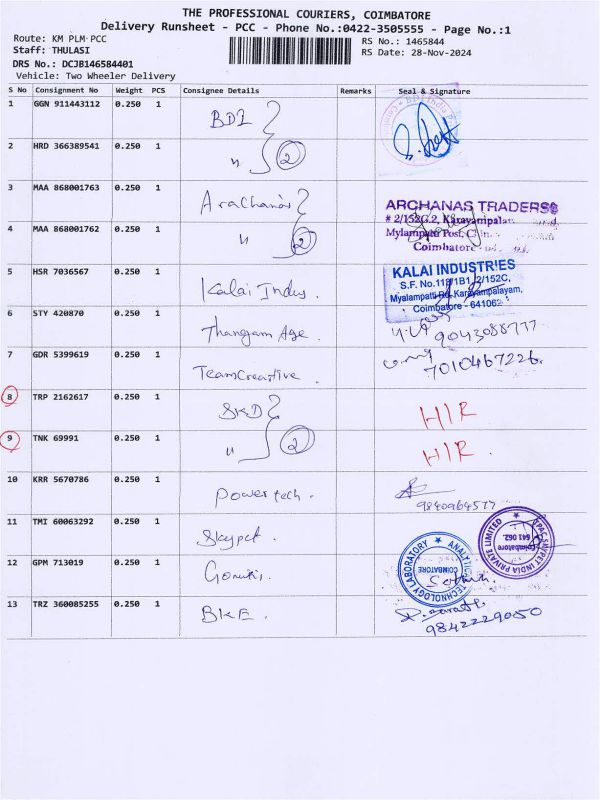 THE PROFESSIONAL COURIERS, COIMBATORE
Delivery Runsheet - PCC - Phone No.:0422-3505555 - Page No.:1
Route: KM PLM-PCC
RS No.: 1465844
Staff: THULASI
RS Date: 28-Nov-2024
DRS No.: DCJB146584401
Vehicle: Two Wheeler Delivery
S No Consignment No Weight PCS Consignee Details Remarks Seal & Signature
1 GGN 911443112 0.250 1 BDI
2 HRD 366389541 0.250 1 " 2
3 MAA 868001763 0.250 1 Arachanas ARCHANAS TRADERS
# 2/152G.2, Karayampalat
4 MAA 868001762 0.250 1 " 2 Mylampatti Post,
Coimbatore
5 HSR 7036567 0.250 1 Kalai Indus. KALAI INDUSTRIES
S.F. No.118/1B1, 2/152C,
Myalampatti Rd, Karayampalayam,
Coimbatore - 641062
6 STY 420870 0.250 1 Thangam Age. 9043088777
7 GDR 5399619 0.250 1 TeamCreative 7010467226
8 TRP 2162617 0.250 1 SKD H/R
9 TNK 69991 0.250 1 " 2 H/R.
10 KRR 5670786 0.250 1 Powertech. 9840964577
11 TMI 60063292 0.250 1 Skypet. INDIA PRIVATE LIMITED
Coimbatore
641 062.
12 GPM 713019 0.250 1 TECHNOLOGY LABORATORY ANALYTICAL
COIMBATORE
13 TRZ 360085255 0.250 1 BKE. 9842229050